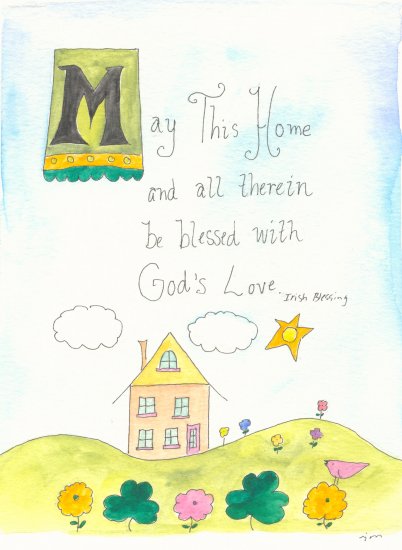 May This Home
and all therein
be blessed with
God's Love.
Irish Blessing